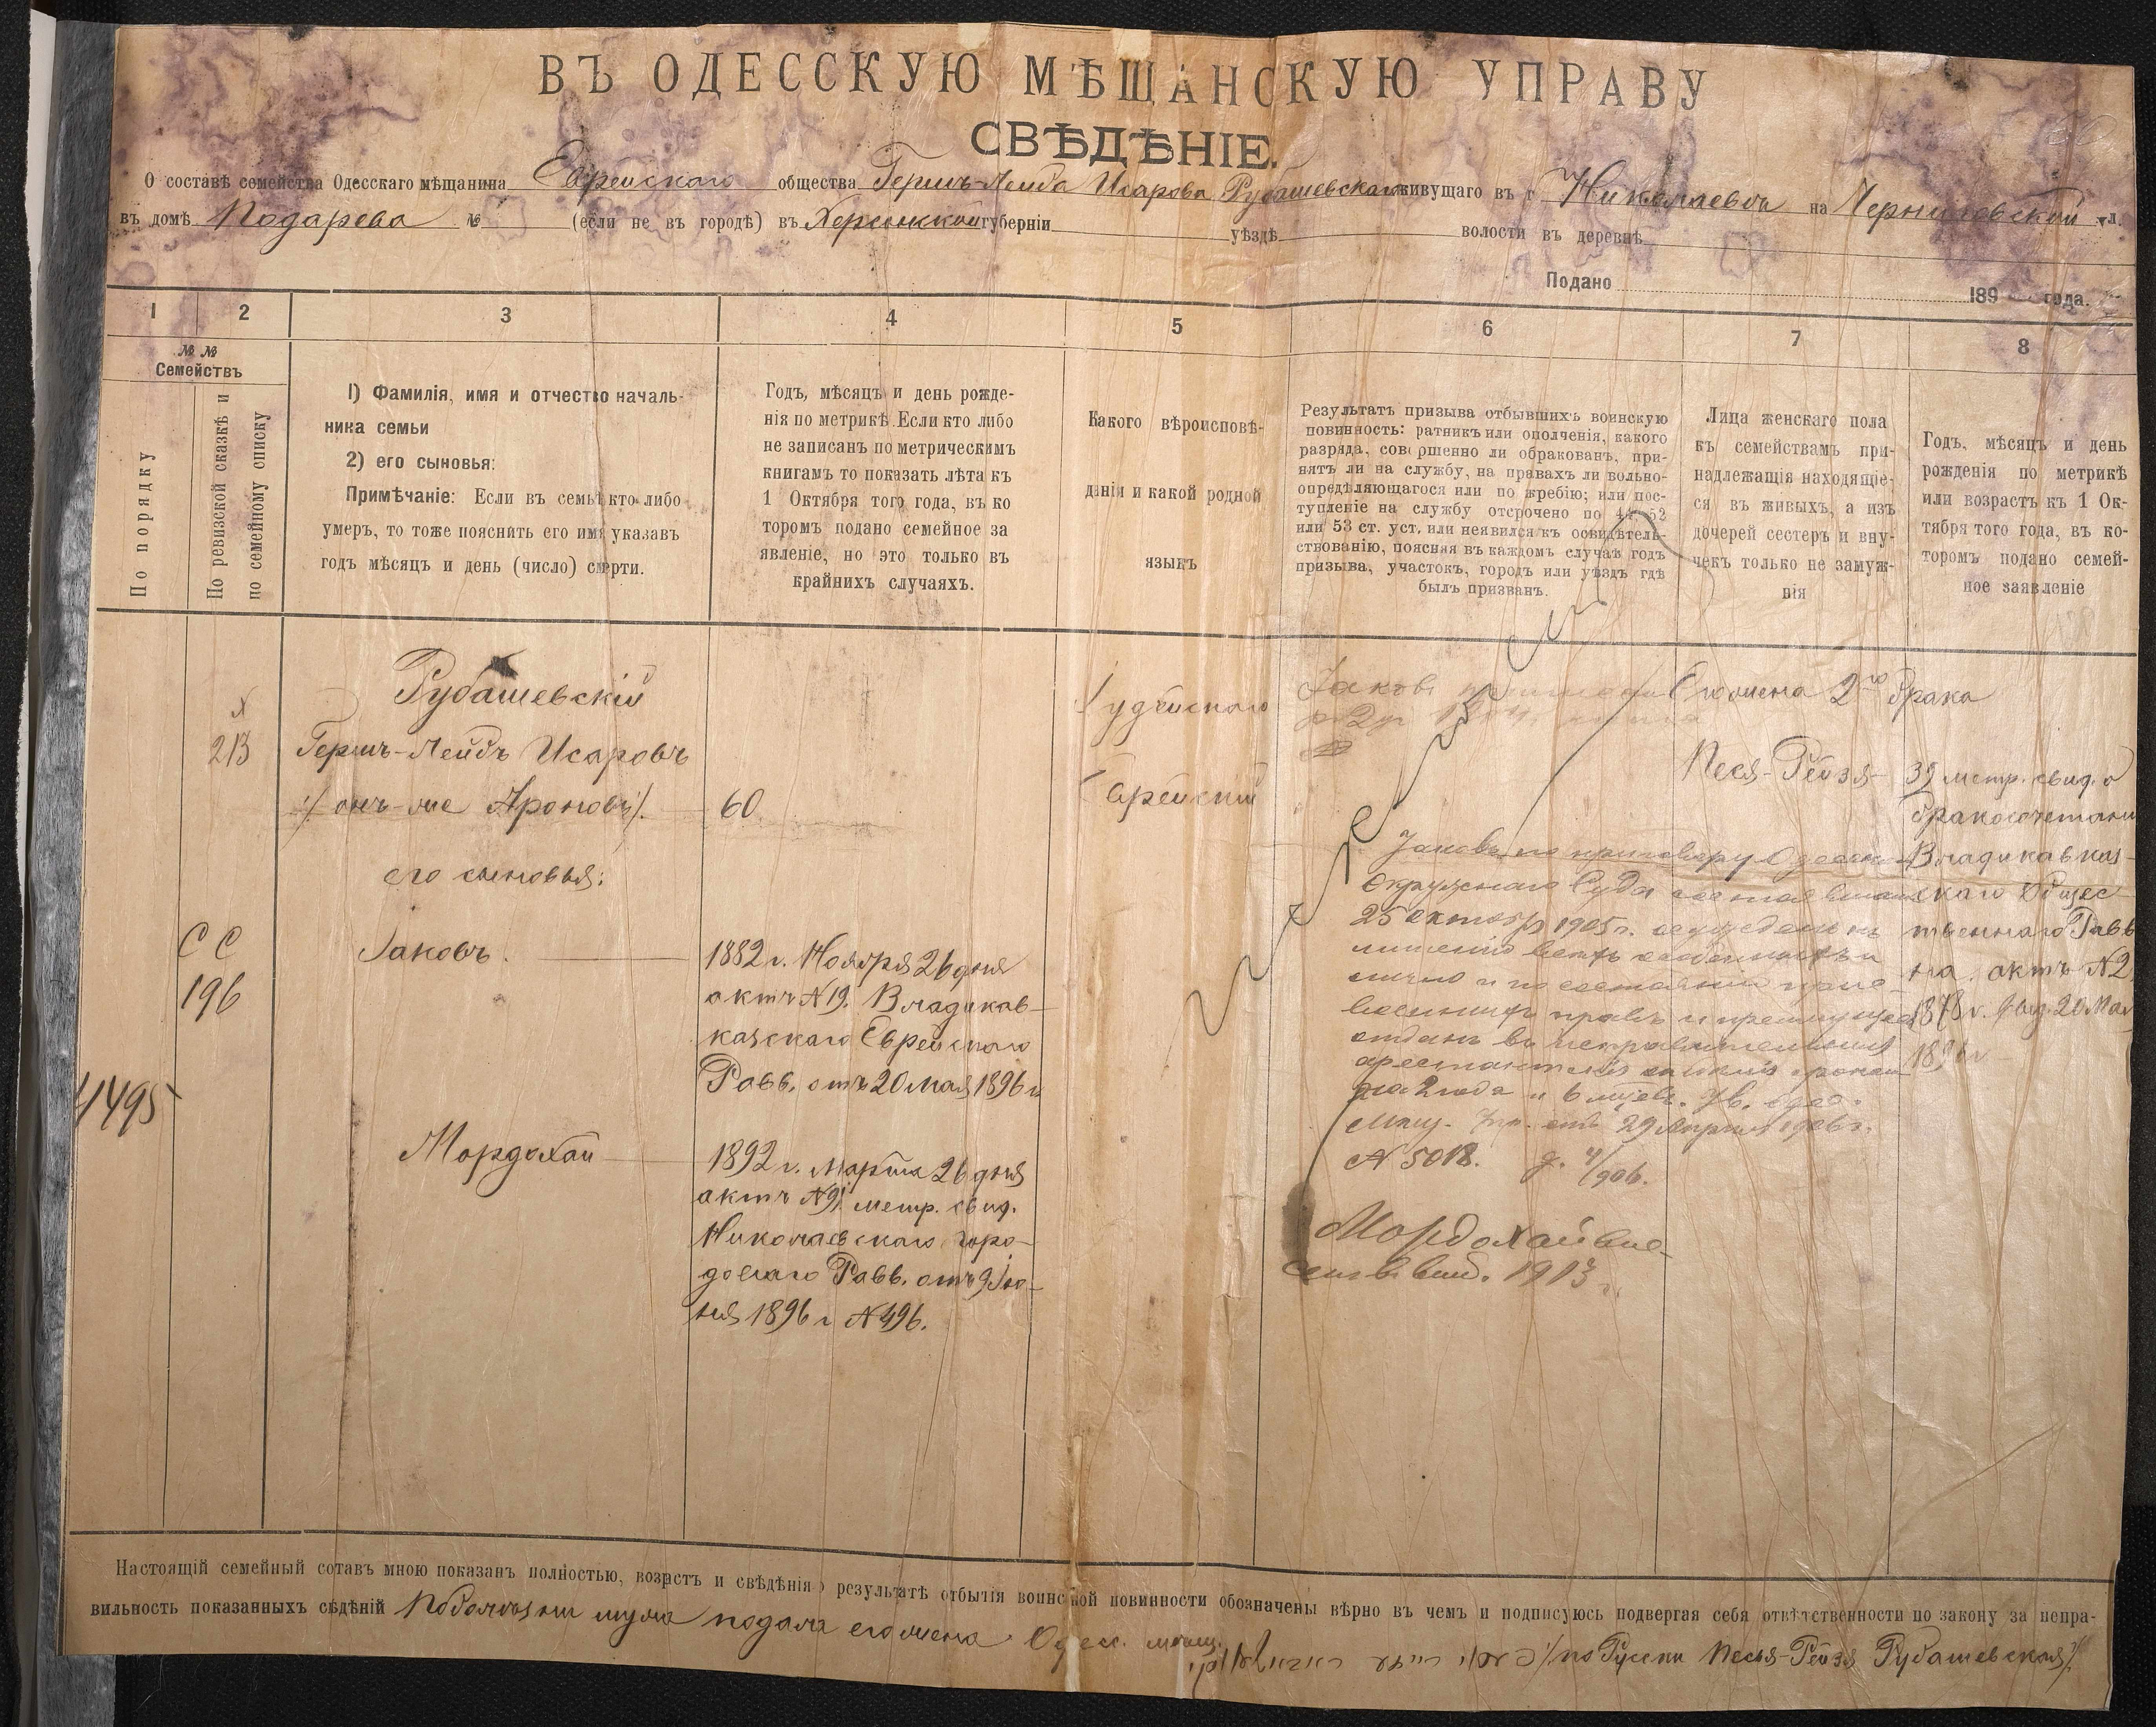 ВЪ ОДЕССКУЮ МѢЩАНСКУЮ УПРАВУ
СВѢДѢНІЕ.
О составѣ семейства Одесскаго мѣщанина Еврейскаго общества Гершъ-Лейба Исарова Рубашевскаго живущаго въ г Николаевѣ на Черниговской ул.
въ домѣ Подарева № (если не въ городѣ) въ Херсонской губерніи уѣздѣ волости въ деревнѣ
Подано 189 года.
1 2 3 4 5 6 7 8
№ №
Семействъ
По порядку
По ревизской сказкѣ и
по семейному списку
1) Фамилія, имя и отчество началь-
ника семьи
2) его сыновья:
Примѣчаніе: Если въ семьѣ кто либо
умеръ, то тоже пояснить его имя указавъ
годъ мѣсяцъ и день (число) смерти.
Годъ, мѣсяцъ и день рожде-
нія по метрикѣ. Если кто либо
не записанъ по метрическимъ
книгамъ то показать лѣта къ
1 Октября того года, въ ко
торомъ подано семейное за
явленіе, но это только въ
крайнихъ случаяхъ.
Какого вѣроисповѣ-
данія и какой родной
языкъ
Результатъ призыва отбывшихъ воинскую
повинность: ратникъ или ополченія, какого
разряда, совершенно ли обракованъ, при-
нятъ ли на службу, на правахъ ли вольно-
опредѣляющагося или по жребію; или пос-
тупленіе на службу отсрочено по 44, 52
или 53 ст. уст. или неявился къ освидѣтель-
ствованію, поясняя въ каждомъ случаѣ годъ
призыва, участокъ, городъ или уѣздъ гдѣ
былъ призванъ.
Лица женскаго пола
къ семействамъ при-
надлежащія находящіе-
ся въ живыхъ, а изъ
дочерей сестеръ и вну-
чекъ только не замуж-
нія
Годъ, мѣсяцъ и день
рожденія по метрикѣ
или возрастъ къ 1 Ок-
тября того года, въ ко-
торомъ подано семей-
ное заявленіе
4495
х
213
СС
196
Рубашевскій
Гершъ-Лейбъ Исаровъ
/: онъ-же Ароновъ :/
его сыновья:
Іаковъ.
Мордохай
60
1882 г. Ноября 26 дня
актъ №19. Владикав-
казскаго Еврейскаго
Равв. отъ 20 Мая 1896 г
1892 г. Марта 26 дня
актъ №91 метр. свид.
Николаевскаго горо-
доваго Равв. отъ 9 Ію-
ня 1896 г №496.
Іудейскаго
Еврейскій
Іаковъ
Іаковъ по приговору Одесск.
Окружнаго Суда состоявшемуся
25 октября 1905 г. осужденъ къ
лишенію всѣхъ особенныхъ
лично и по состоянію присво-
восенныхъ правъ и преимуществ
отданъ въ исправительныя
арестантскія отдѣленія срокомъ
на 2 года и 6 мѣсяц. Ув. Одес.
Мѣщ. Упр. отъ 29 Апрѣля 1906 г.
№ 5018. д. 4/906.
Мордохай вне-
сенъ въ 1913 г.
Его жена 2го брака
Песя-Рейзя
39 метр. свид. о
бракосочетаніи
Владикавказ-
скаго Общес-
твеннаго Равв
на актъ №2
1878 г. выд. 20 Мая
1896 г
Настоящій семейный сотавъ мною показанъ полностью, возрастъ и свѣдѣнія о результатѣ отбытія воинской повинности обозначены вѣрно въ чемъ и подписуюсь подвергая себя отвѣтственности по закону за непра-
вильность показанныхъ свѣдѣній По болѣзни мужа подала его жена Одесс. мѣщ. /по Русски Песья-Рейзя Рубашевская/